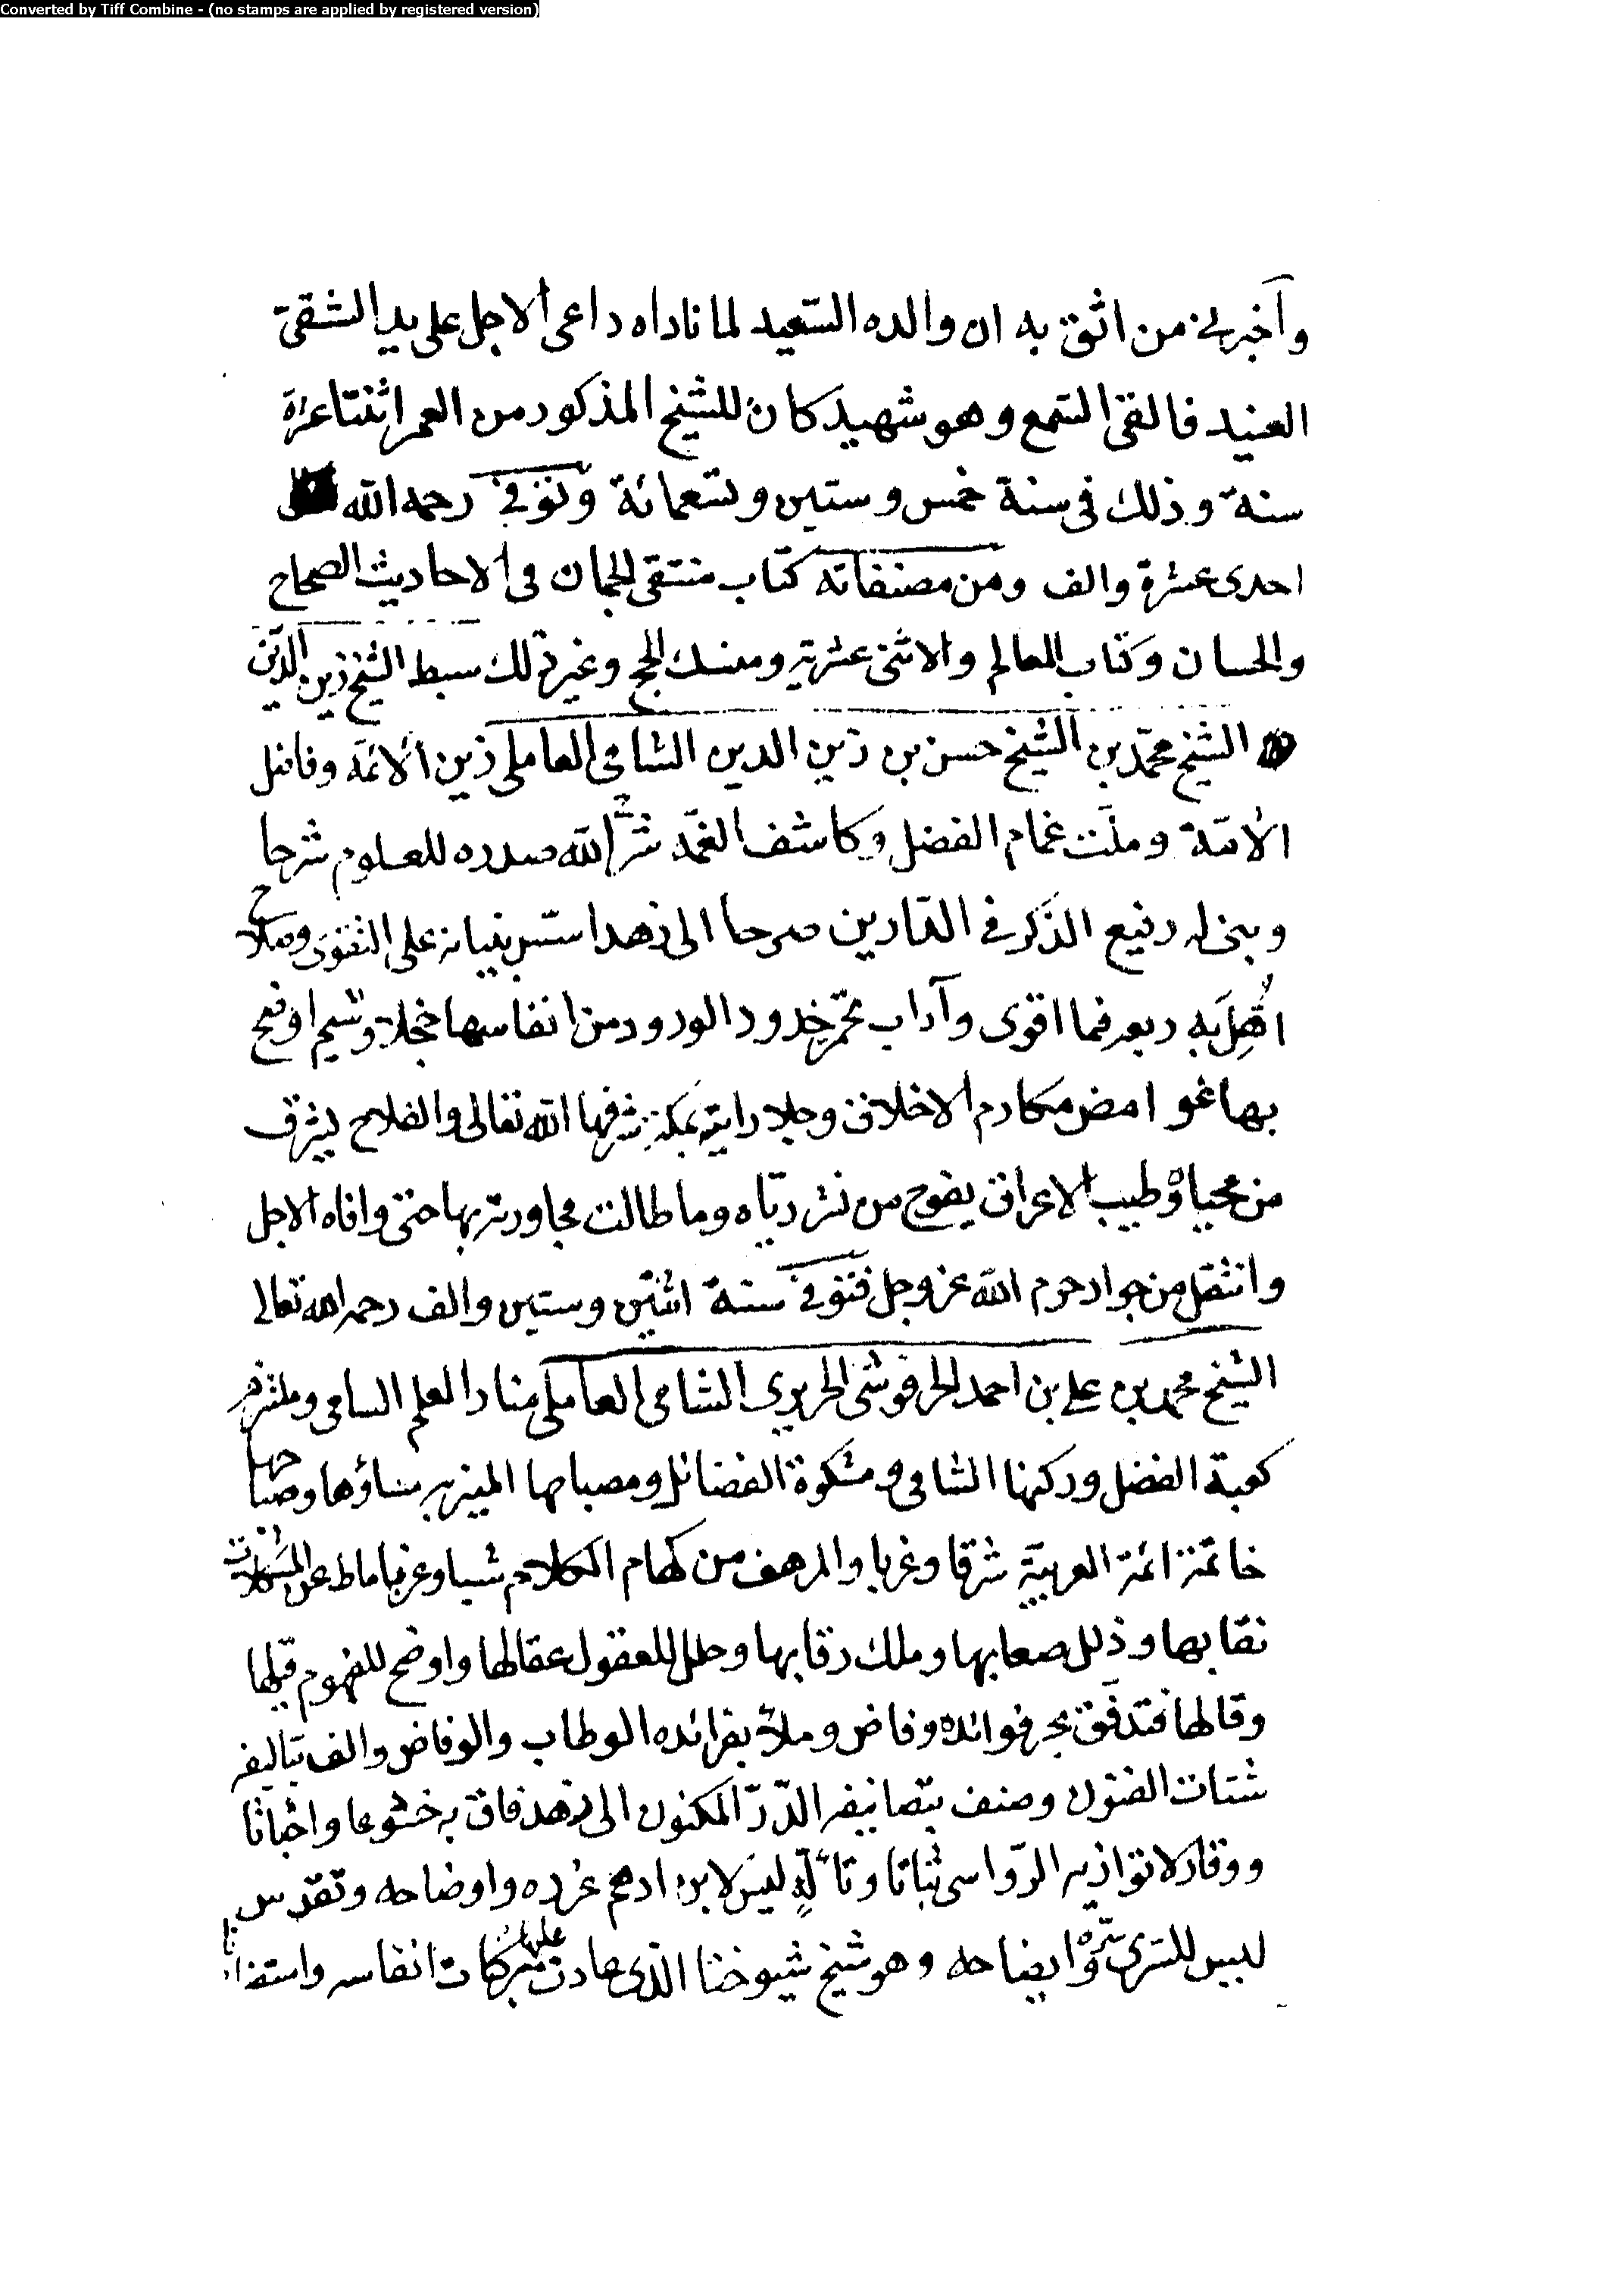 Converted by Tiff Combine - (no stamps are applied by registered version)
وأخبرني من اثق به ان والده السّعيد لما ناداه داعى الاجل على يد الشقىّ
العنيد فالقى السّمع وهو شهيد كان للشيخ المذكور من العمر اثنتا عشرة
سنة وذلك فى سنة خمس وستين وتسعمائة وتوفي رحمه الله
احدى عشرة والف ومن مصنفاته كتاب منتقى الجمان فى الاحاديث الصحاح
والحسان وكتاب المعالم والاثنى عشرية ومنسك الحج وغير ذلك سبط الشيخ زين الدّين
الشيخ محمّد بن الشيخ حسن بن زين الدين الشامى العاملى زين الائمّة وفاضل
الأمّة وملّث غمام الفضل وكاشف الغمّة شرح الله صدره للعلوم شرحا
وبنى له رفيع الذّكر في الدّارين صرحا الى زهد اسّس بنيانه على التقوى وصلاح
اهّل به ربعه فما اقوى وآداب تحمّر خدود الورود من انفاسها خجلا وشيم اوضح
بها غوامض مكارم الاخلاق وجلا رايته بمكة شرفها الله تعالى والفلاح يشرق
من محياه وطيب الاعراق يفوح من نشر ريّاه وما طالت مجاورته بها حتى وافاه الاجل
وانتقل من جوار حرم الله عز وجل فتوفي سنة اثنتين وستين والف رحمه الله تعالى
الشيخ محمد بن على بن احمد الحرفوشى الحريرى الشامى العاملى منار العلم السامى وملتزم
كعبة الفضل وركنها الشامى ومشكوة الفضائل ومصباحها المنير به مساؤها وصباحها
خاتمة ائمة العربيّة شرقا وغربا والمرهف من كهام الكلام شبا وغربا ماط عن المشكلات
نقابها وذلل صعابها وملك رقابها وحلل للعقول عقالها واوضح للفهوم قيلها
وقالها فتدفّق بحر فوائده وفاض وملأ بفرائده الوطاب والوفاض والف بتاليفه
شتات الفنون وصنف بتصانيفه الدّرّ المكنون الى زهد فاق به خشوعا واخباتا
ووقار لا توازيه الرّواسى ثباتا وتألّه ليس لابن ادهم غرره واوضاحه وتقدّس
ليس للسّرىّ سرّه وايضاحه وهو شيخ شيوخنا الذى عادت علينا بركات انفاسه واستضانا